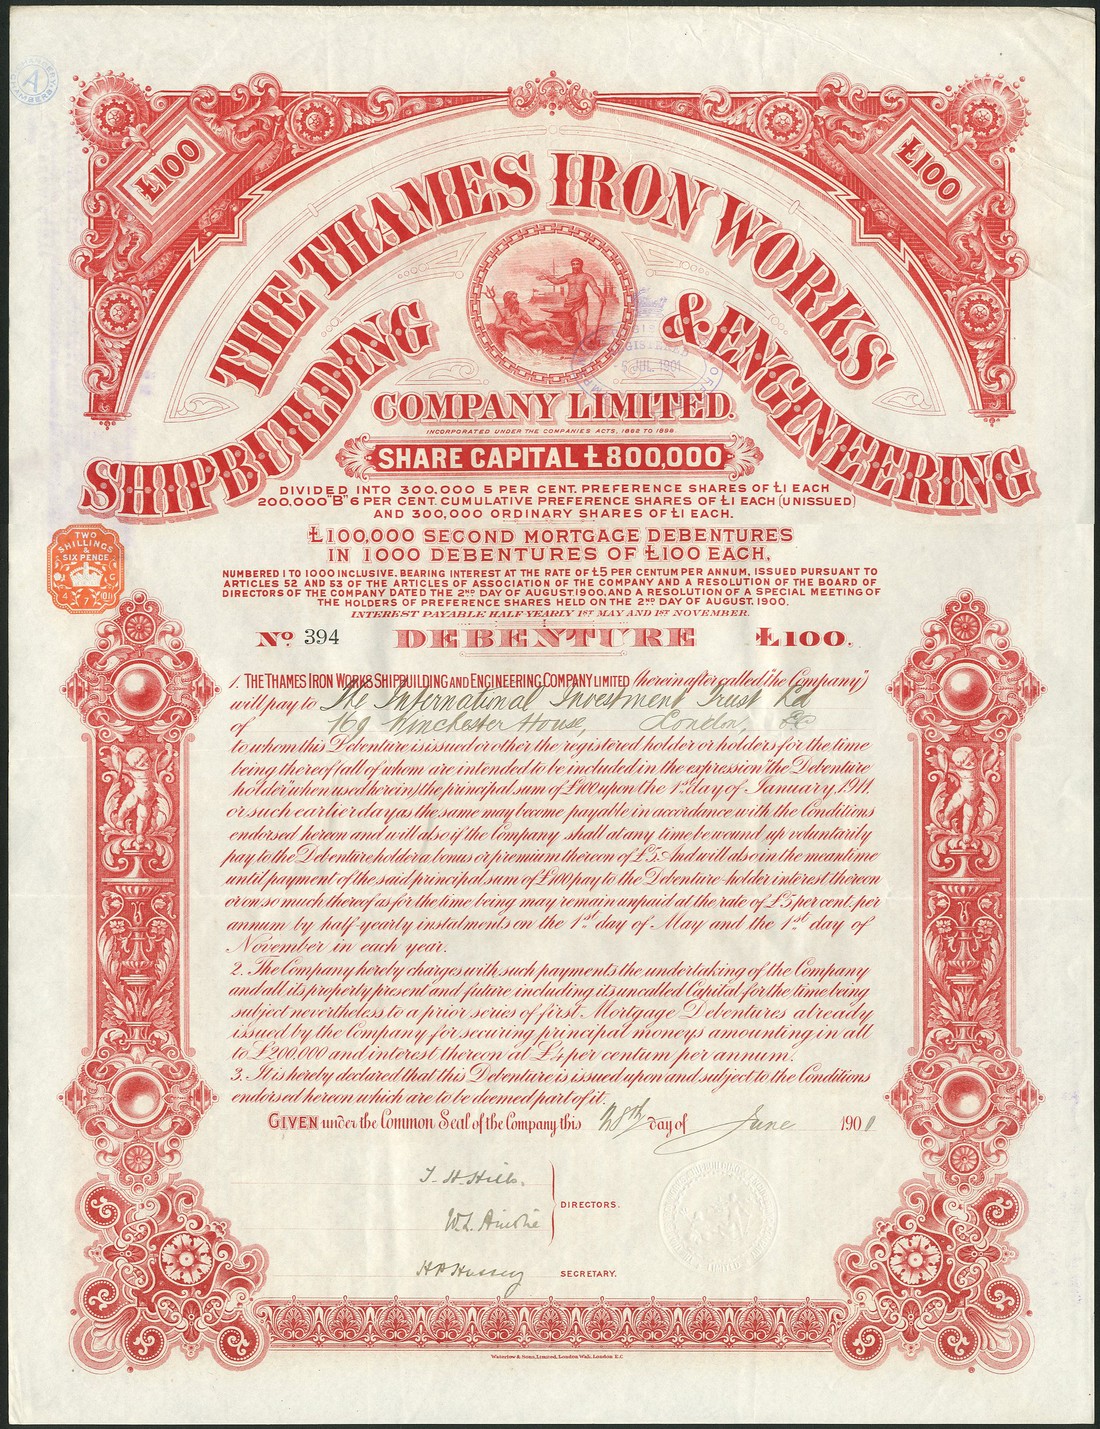 £100
£100
THE THAMES IRON WORKS
SHIPBUILDING & ENGINEERING
COMPANY LIMITED.
INCORPORATED UNDER THE COMPANIES ACTS, 1862 TO 1898.
SHARE CAPITAL £800,000
DIVIDED INTO 300,000 5 PER CENT. PREFERENCE SHARES OF £1 EACH
200,000 "B" 6 PER CENT CUMULATIVE PREFERENCE SHARES OF £1 EACH (UNISSUED)
AND 300,000 ORDINARY SHARES OF £1 EACH.
£100,000 SECOND MORTGAGE DEBENTURES
IN 1000 DEBENTURES OF £100 EACH,
NUMBERED 1 TO 1000 INCLUSIVE, BEARING INTEREST AT THE RATE OF £5 PER CENTUM PER ANNUM, ISSUED PURSUANT TO
ARTICLES 52 AND 53 OF THE ARTICLES OF ASSOCIATION OF THE COMPANY AND A RESOLUTION OF THE BOARD OF
DIRECTORS OF THE COMPANY DATED THE 2ND DAY OF AUGUST 1900, AND A RESOLUTION OF A SPECIAL MEETING OF
THE HOLDERS OF PREFERENCE SHARES HELD ON THE 2ND DAY OF AUGUST, 1900.
INTEREST PAYABLE HALF-YEARLY 1ST MAY AND 1ST NOVEMBER.
TWO
SHILLINGS
&
SIX PENCE
No. 394 DEBENTURE £100.
1. THE THAMES IRON WORKS SHIPBUILDING AND ENGINEERING COMPANY LIMITED (hereinafter called "the Company")
will pay to The International Investment Trust Ld
of 169 Winchester House, London, EC
to whom this Debenture is issued or other the registered holder or holders for the time
being thereof (all of whom are intended to be included in the expression "the Debenture
holder" when used herein) the principal sum of £100 upon the 1st day of January 1911
or such earlier day as the same may become payable in accordance with the Conditions
endorsed hereon and will also if the Company shall at any time be wound up voluntarily
pay to the Debenture holder a bonus or premium thereon of £5. And will also in the meantime
until payment of the said principal sum of £100 pay to the Debenture-holder interest thereon
or on so much thereof as for the time being may remain unpaid at the rate of £5 per cent. per
annum by half-yearly instalments on the 1st day of May and the 1st day of
November in each year.
2. The Company hereby charges with such payments the undertaking of the Company
and all its property present and future including its uncalled Capital for the time being
subject nevertheless to a prior series of first Mortgage Debentures already
issued by the Company for securing principal moneys amounting in all
to £200,000 and interest thereon at £4 per centum per annum.
3. It is hereby declared that this Debenture is issued upon and subject to the Conditions
endorsed hereon which are to be deemed part of it.
GIVEN under the Common Seal of the Company this 28th day of June 1901
DIRECTORS.
SECRETARY.
Waterlow & Sons, Limited, London Wall, London E.C.